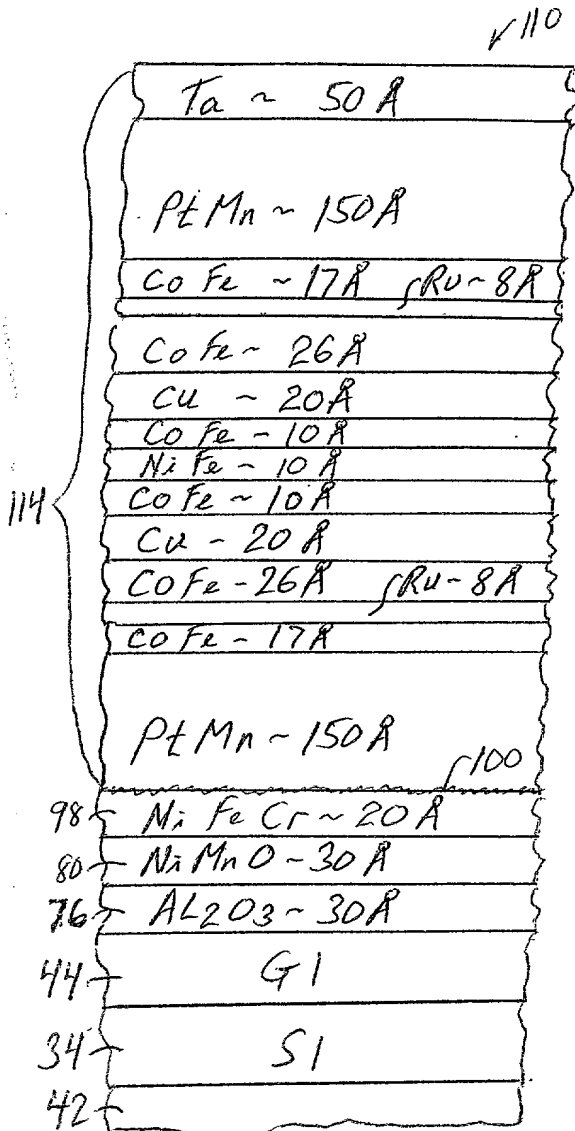 110
Ta ~ 50 Å
PtMn ~ 150 Å
CoFe ~ 17 Å Ru ~ 8 Å
CoFe ~ 26 Å
Cu ~ 20 Å
CoFe ~ 10 Å
NiFe ~ 10 Å
CoFe ~ 10 Å
114
Cu ~ 20 Å
CoFe ~ 26 Å Ru ~ 8 Å
CoFe ~ 17 Å
PtMn ~ 150 Å
100
98 NiFeCr ~ 20 Å
80 NiMnO ~ 30 Å
76 AL2O3 ~ 30 Å
44 G1
34 S1
42